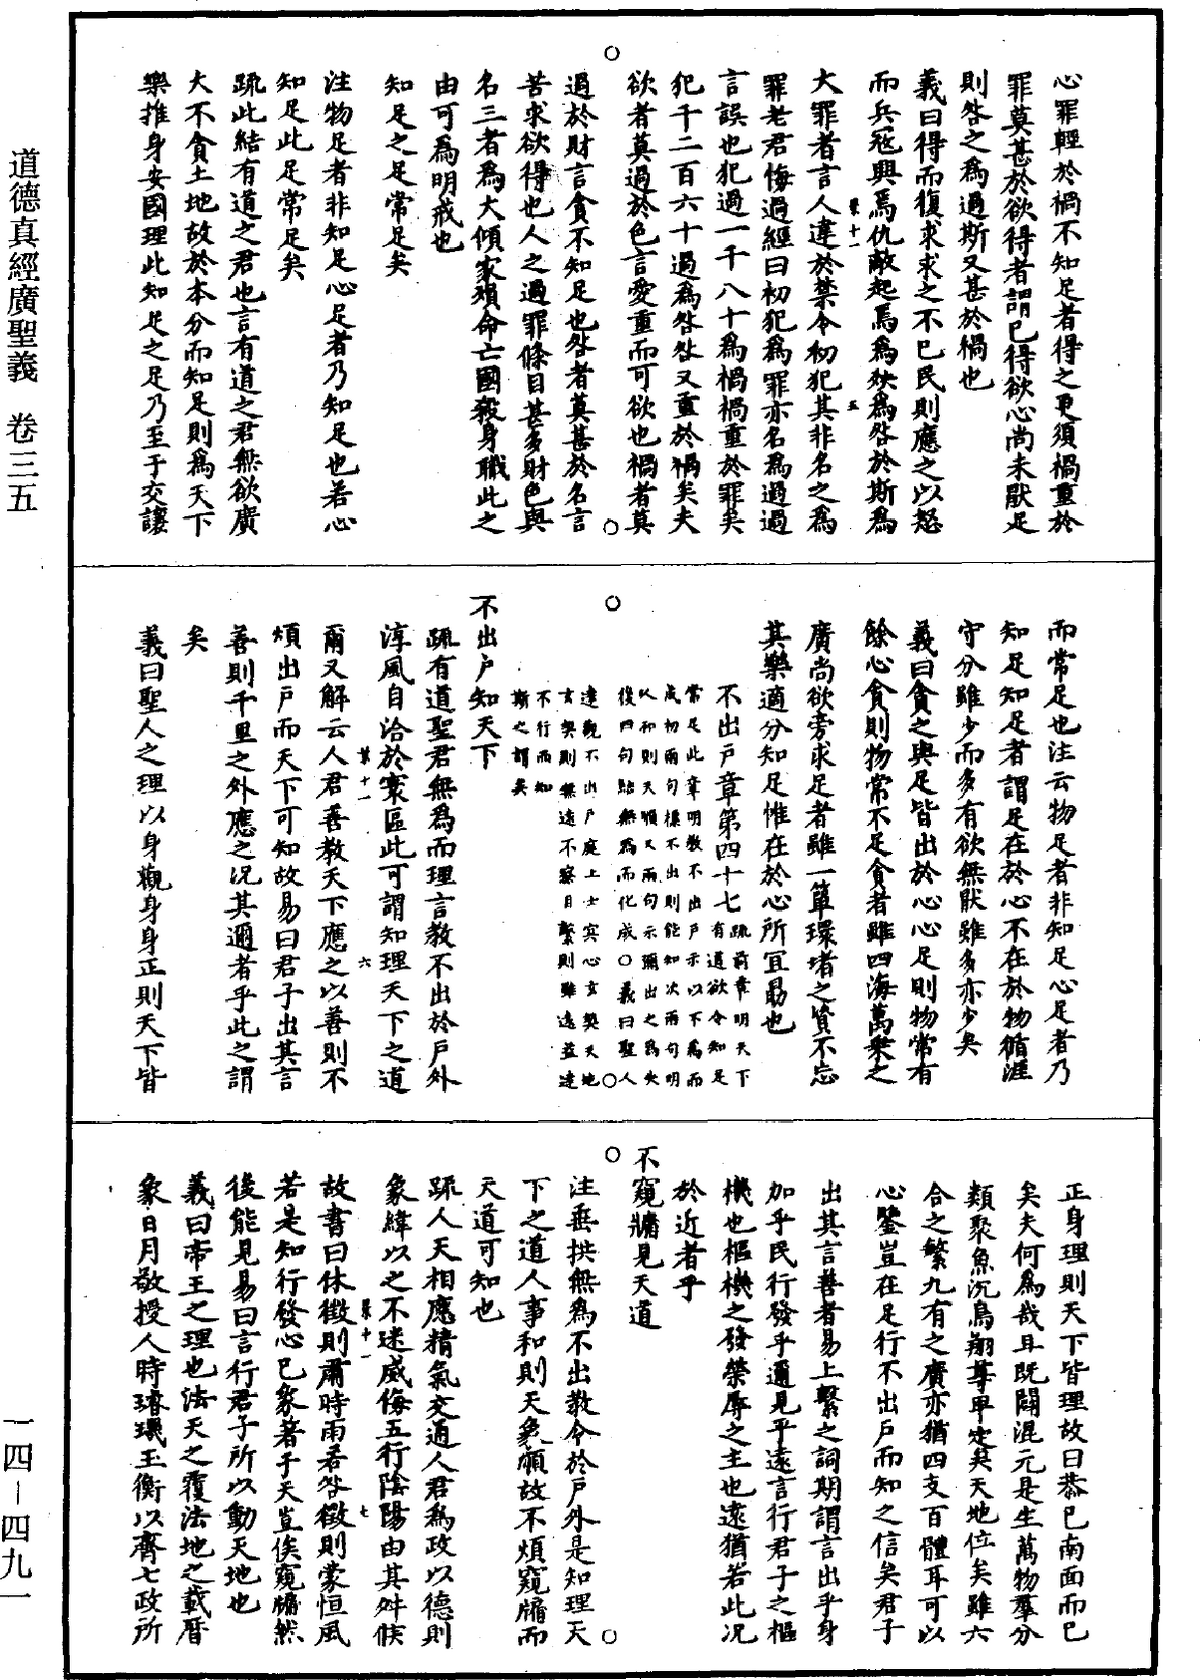 心罪輕於禍不知足者得之更須禍重於
罪莫甚於欲得者謂已得欲心尚未猒足
則咎之為過斯又甚於禍也
義曰得而復求求之不已民則應之以怒
而兵寇興焉仇敵起焉為殃為咎於斯為
大罪者言人違於禁令初犯其非名之為
罪老君悔過經曰初犯為罪亦名為過過
言誤也犯過一千八十為禍禍重於罪矣
犯千二百六十過為咎咎又重於禍矣夫
欲者莫過於色言愛重而可欲也禍者莫
過於財言貪不知足也咎者莫甚於名言
苦求欲得也人之過罪條目甚多財色與
名三者為大傾家殞命亡國殺身職此之
由可為明戒也
知足之足常足矣
注物足者非知足心足者乃知足也若心
知足此足常足矣
疏此結有道之君也言有道之君無欲廣
大不貪土地故於本分而知足則為天下
樂推身安國理此知足之足乃至于交讓
而常足也注云物足者非知足心足者乃
知足知足者謂足在於心不在於物循涯
守分雖少而多有欲無猒雖多亦少矣
義曰貪之與足皆出於心心足則物常有
餘心貪則物常不足貪者雖四海萬乘之
廣尚欲旁求足者雖一簞環堵之貧不忘
其樂適分知足惟在於心所宜勗也
不出戶章第四十七
疏前章明天下
有道欲令知足
常足此章明教不出戶示以不為而
成初兩句標不出則能知次兩句明
以和則天順又兩句示彌出之為失
後四句結無為而化成○義曰聖人
達觀不出戶庭上士冥心玄契天地
玄契則無遠不察目繫則雖遠益達
不行而知
斯之謂矣
不出戶知天下
疏有道聖君無為而理言教不出於戶外
淳風自洽於寰區此可謂知理天下之道
爾又解云人君善教天下應之以善則不
煩出戶而天下可知故易曰君子出其言
善則千里之外應之況其邇者乎此之謂
矣
義曰聖人之理以身觀身身正則天下皆
正身理則天下皆理故曰恭己南面而已
矣夫何為哉且既闢混元是生萬物羣分
類聚魚沉鳥翔尊卑定矣天地位矣雖六
合之繁九有之廣亦猶四支百體耳可以
心鑒豈在足行不出戶而知之信矣君子
出其言善者易上繫之詞期謂言出乎身
加乎民行發乎邇見乎遠言行君子之樞
機也樞機之發榮辱之主也遠猶若此況
於近者乎
不窺牖見天道
注垂拱無為不出教令於戶外是知理天
下之道人事和則天象順故不煩窺牖而
天道可知也
疏人天相應精氣交通人君為政以德則
象緯以之不迷威侮五行陰陽由其舛候
故書曰休徵則肅時雨若咎徵則蒙恒風
若是知行發心已象著于天豈俟窺牖然
後能見易曰言行君子所以動天地也
義曰帝王之理也法天之覆法地之載曆
象日月敬授人時璿璣玉衡以齊七政所
道德真經廣聖義 卷三五
一四—四九一